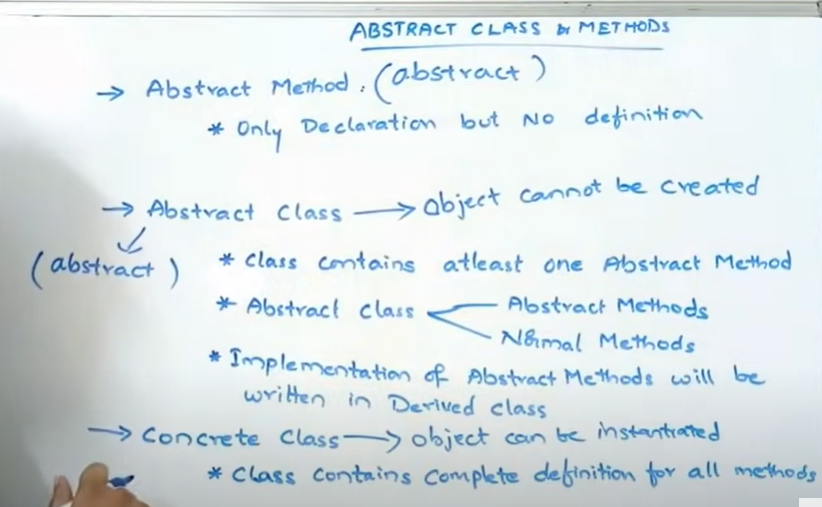 ABSTRACT CLASS & METHODS
→ Abstract Method. (abstract)
* Only Declaration but NO definition
→ Abstract Class → Object cannot be created
(abstract)
* Class contains atleast one Abstract Method
* Abstract Class
Abstract Methods
Normal Methods
* Implementation of Abstract Methods will be
written in Derived class
→ Concrete Class → object can be instantrated
* Class contains complete definition for all methods